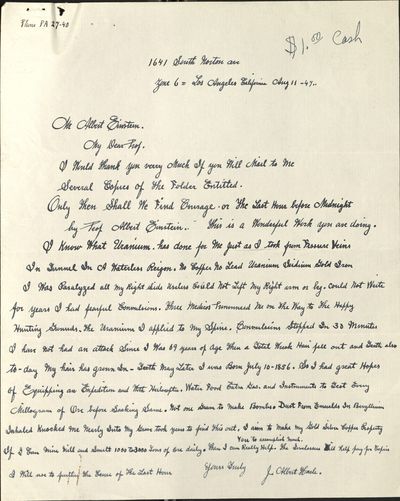 Phone PA 27-40
$1.00 Cash
1641 South Norton ave
Zone 6 = Los Angeles California Aug 11-47..
Mr Albert Einstein.
My Dear Prof.
I Would thank you verry Much If you Will Mail to Me
Several Copies of The Folder Entitled.
Only Then Shall We Find Courage - or The Last Hour before Midnight
by - Prof Albert Einstein.. This is a Wonderful Work you are doing.
I Know What Uranium. has done for Me Just as I took from Fissure Veins
In Tunnel In A Waterless Reigon. No Copper No Lead Uranium Iridium Gold Iron
I Was Paralyzed all My Right Side Useless Could Not Lift My Right arm or leg. Could Not Write
for years I had fearful Convulsions. Three Medics Pronounced Me on The Way to The Happy
Hunting Grounds. The Uranium I applied to My Spine. Convulsions Stopped In 33 Minutes
I have Not had an attack Since I Was 69 years of Age Then a Week Hair fell out and Teeth also
to-day My hair has grown In - Teeth May Later I Was Born July 10-1856. So I had great Hopes
of Equipping an Expedition and With Water Food and Instruments to Test Every
Millogram of Ore before Leaving Same. Not one Gram to Make Bombs. Dust From in Beryllium
Inhaled Knocked me Nearly Into My Grave took years to find This out. I aim to Make My Gold Silver Copper Property
If I Can Mine Mill and Smelt 1000 to 3000 Tons of Ore daily. Then I Can Really Help. The Will Help pay for Copies
I Will use to further the Cause of The Last Hour
Yours Truly
J. Albert